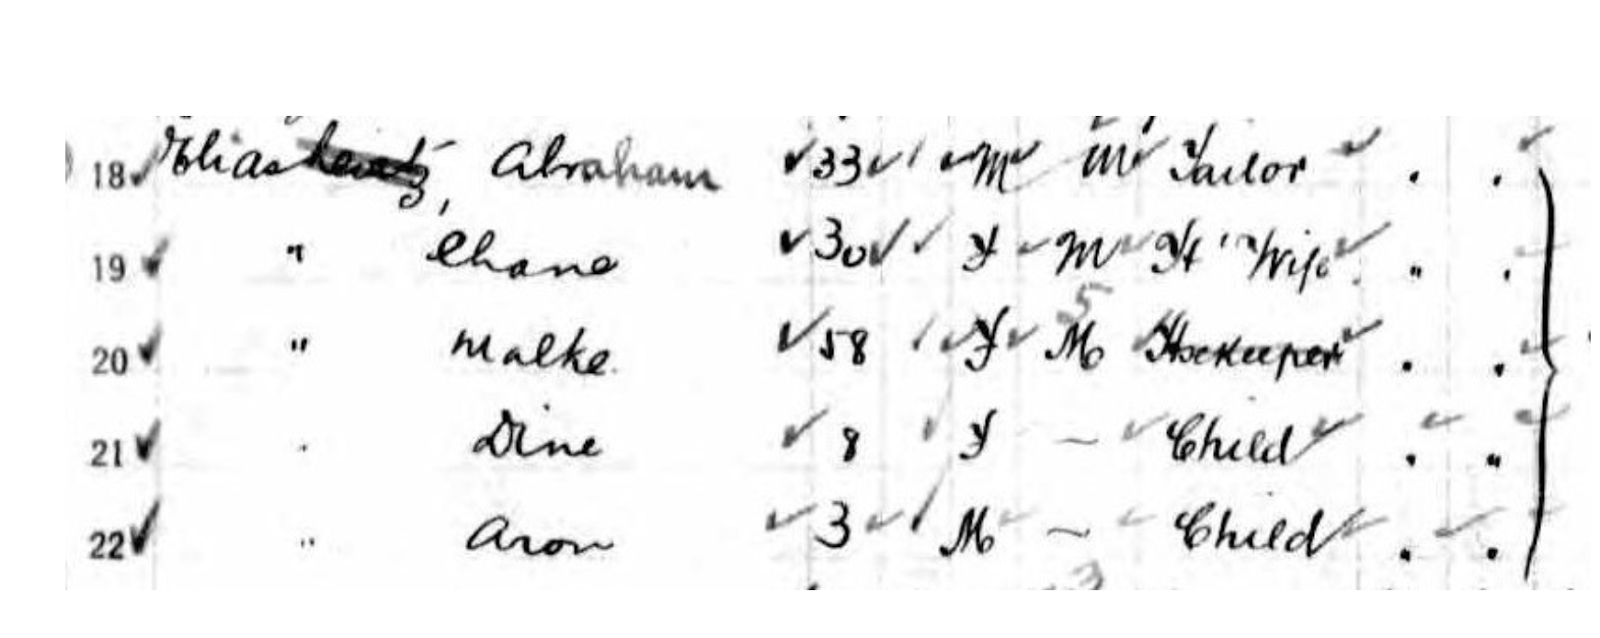 18 Elias, Abraham 33 M M Tailor . .
19 " Chane 30 F M H " Wife " .
20 " Malke. 58 F M Hsekeeper . .
21 . Dine 8 F - Child . "
22 " Aron 3 M - Child . .